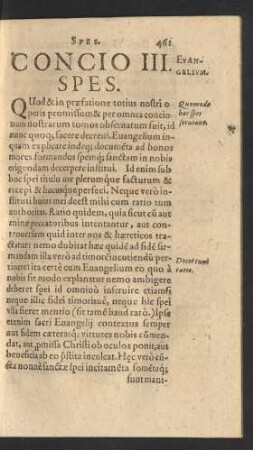 SPES. 461
CONCIO III.
EVAN-
GELIVM.
SPES.
QUod & in præfatione totius nostri o
peris promissum & per omnia concio
num nostrarum tomos obseruatum fuit, id
nunc quoq; facere decreui. Euangelium in-
quam explicare indeq; documẽta ad honos
mores formandos spemq; sanctam in nobis
erigendam decerpere institui. Id enim sub
hac spei titulo me plerumque facturum &
recepi & hactenus perfeci. Neque verò in-
stituti huius mei deest mihi cum ratio tum
authoritas. Ratio quidem, quia sicut cũ aut
minæ peccatoribus intentantur, aut con-
trouersiam quid inter nos & hæreticos tra-
ctatur: nemo dubitat hæc quidẽ ad fidẽ sir-
mandam illa verò ad timorẽ incutiendũ per
tinere: ita certè cum Euangelium eo quo à
nobis sit modo explanatur nemo ambigere
deberet spei id omninò inseruire etiamsi
neque illic fidei timorisue, neque hic spei
vlla fieret mentio (sit tamẽ haud rarò.) Ipse
etenim sacri Euangelij contextus semper
aut fidem cæterasq; virtutes nobis cõmen-
dat, aut promissa Christi ob oculos ponit, aut
beneficia ab eo pstita inculcat. Hęc verò cũ-
cta nonnè sanctæ spei incitamẽta fomẽtaq;
sunt mani-
Quomodo
hac spes
tractatur.